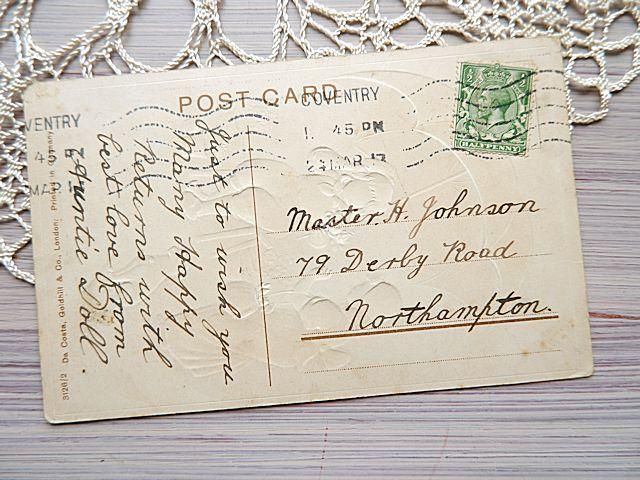 POST CARD
COVENTRY
1. 45 PM
24 MAR 17
HALFPENNY
Master. H. Johnson
79 Derby Road
Northampton.
Just to wish you
Many Happy
Returns with
best love from
Auntie Doll.
VENTRY
MAR 1
3126/2 Da Costa, Goldhill & Co., London; Printed in Germany